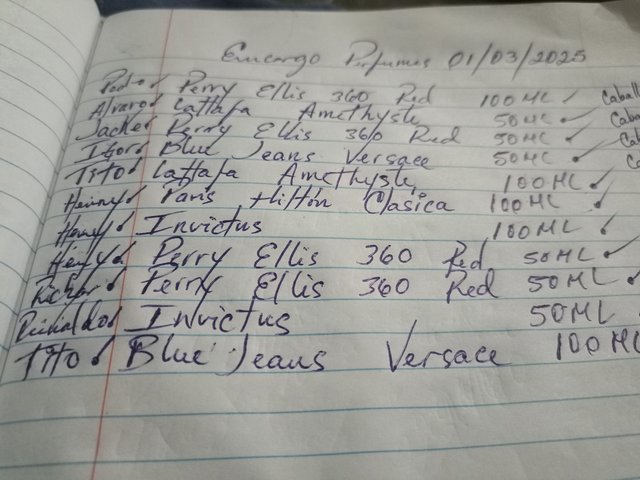 Encargo Perfumes 01/03/2025
Pedro Perry Ellis 360 Red 100 ML Caball
Alvaro Lattafa Amethyste 50 ML Caba
Jacker Perry Ellis 360 Red 50 ML Cal
Igor Blue Jeans Versace 50 ML Ca
Tito Lattafa Amethyste 100 ML
Henry Paris Hilton Clasica 100 ML
Henry Invictus 100 ML
Henry Perry Ellis 360 Red 50 ML
Richar Perry Ellis 360 Red 50 ML
Reinaldo Invictus 50 ML
Tito Blue Jeans Versace 100 ML